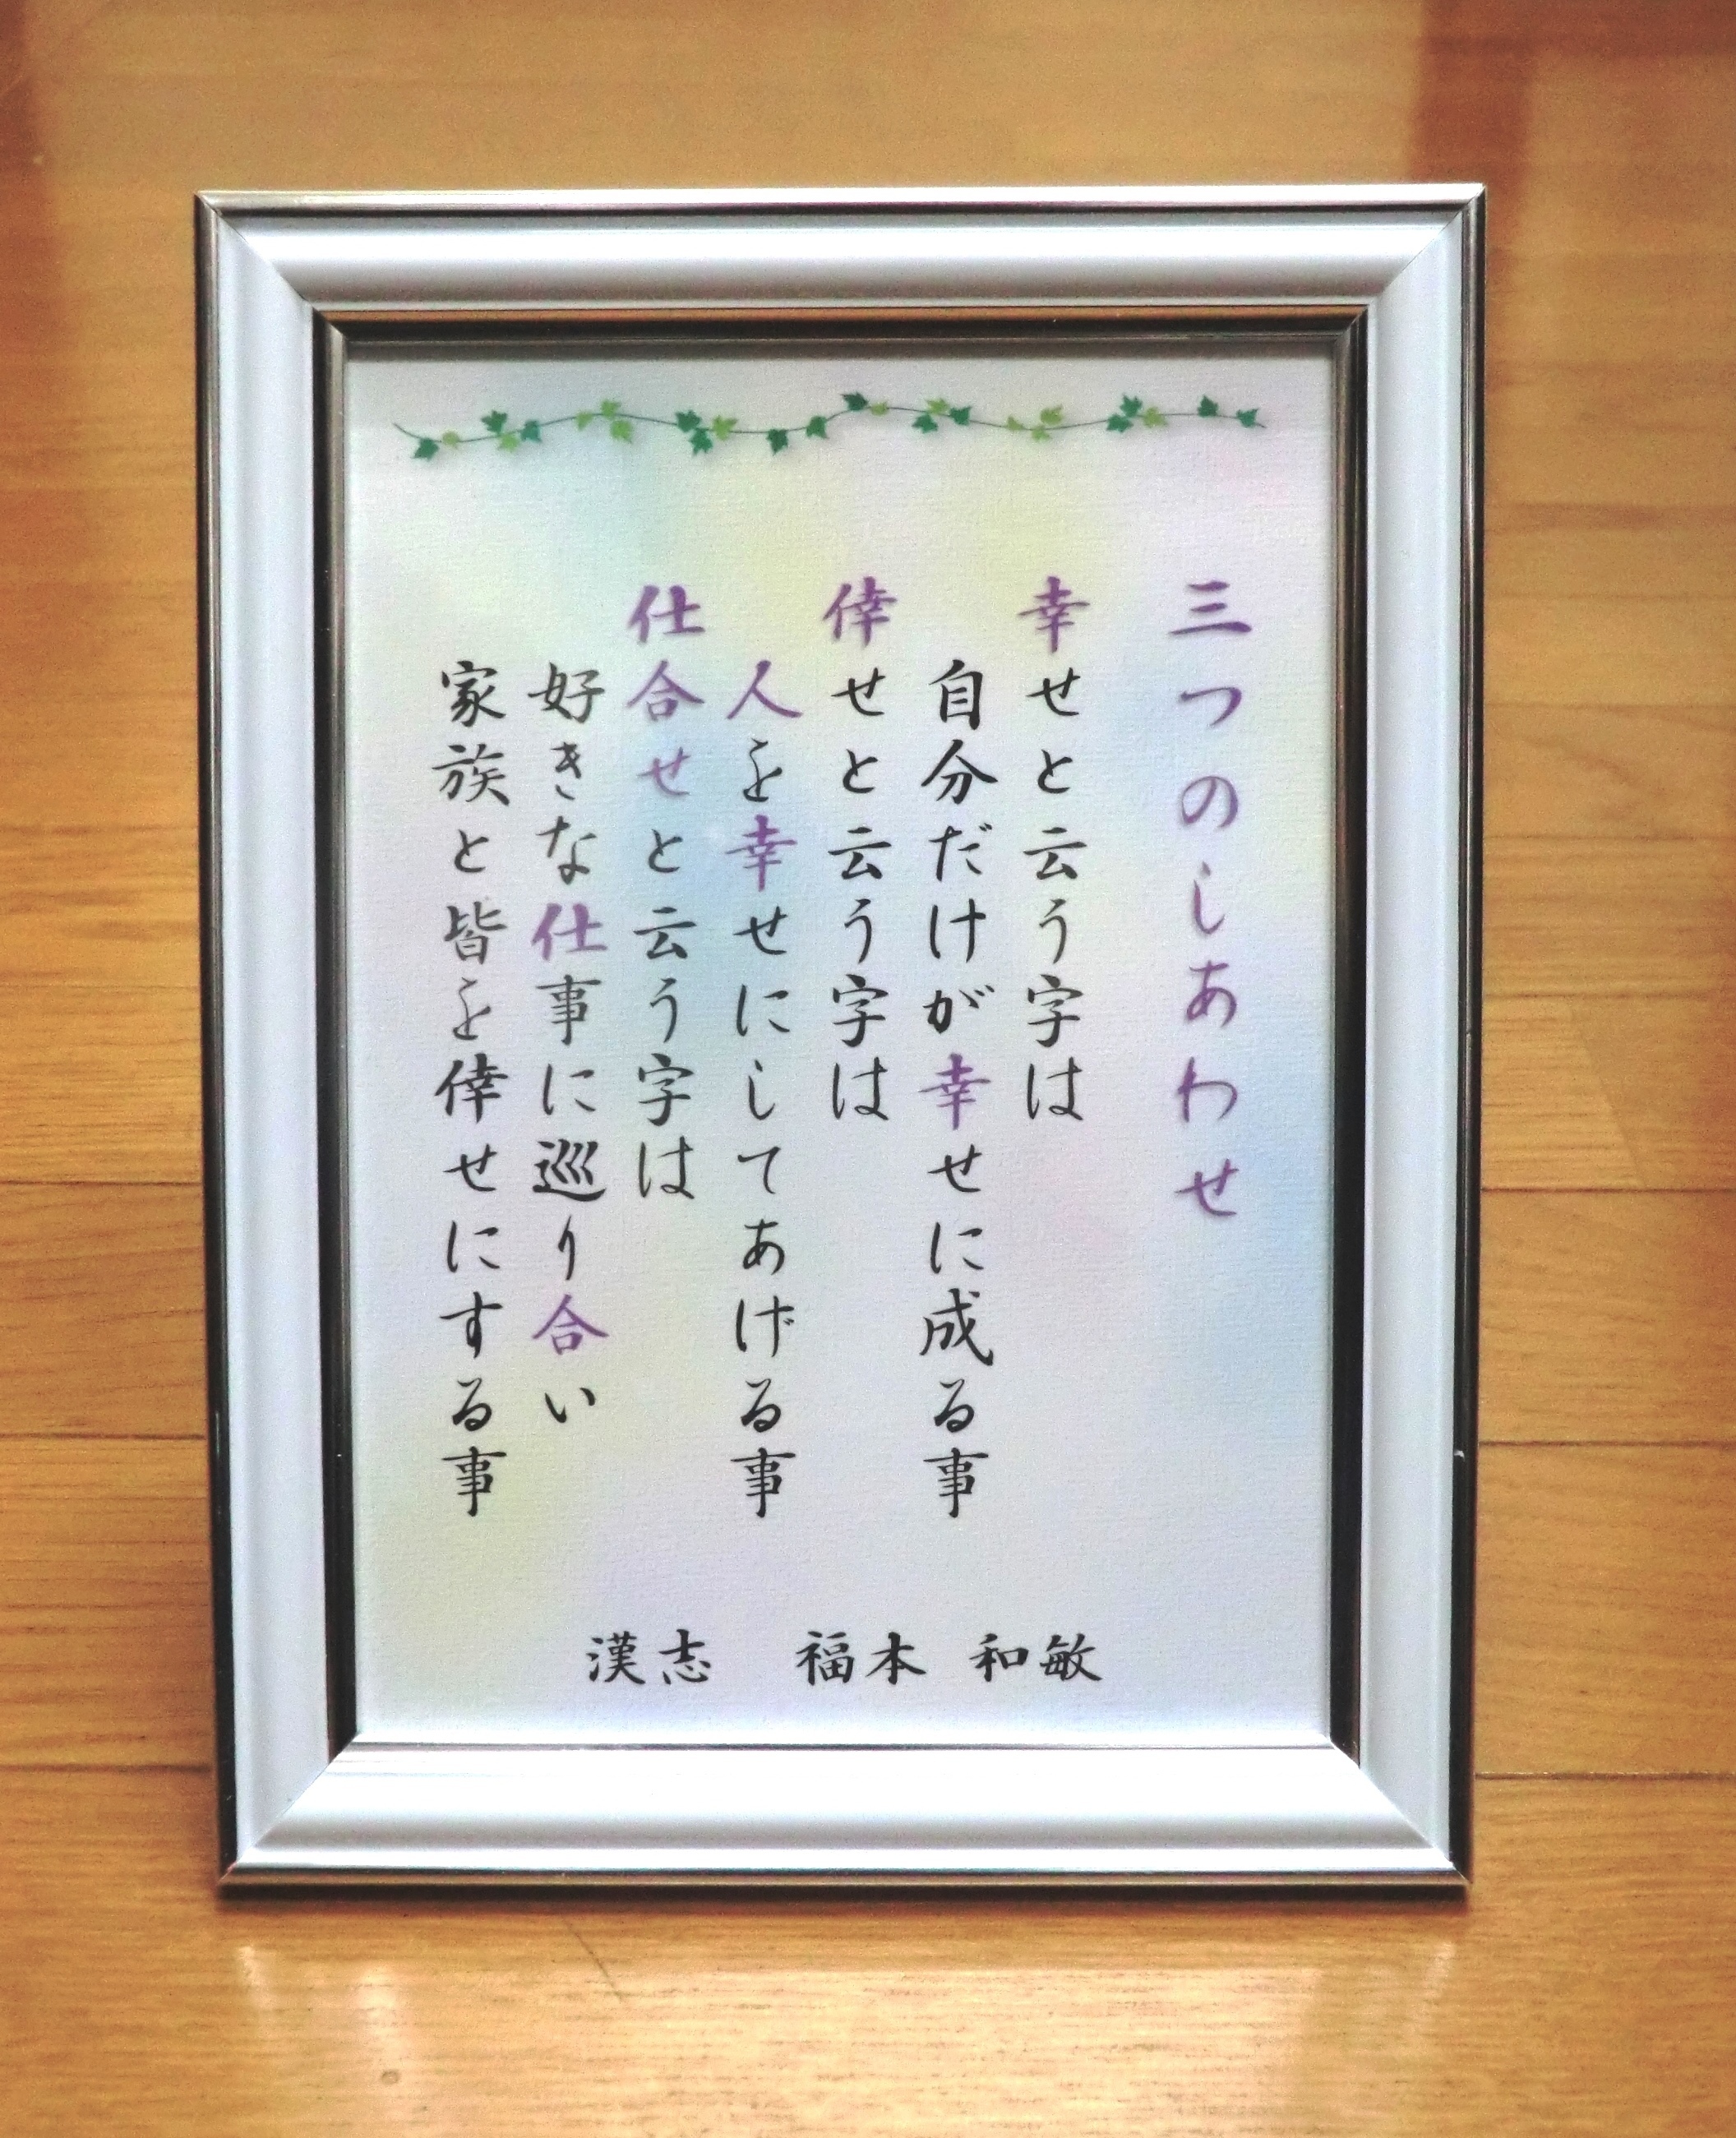 三つのしあわせ
幸せと云う字は
自分だけが幸せに成る事
倖せと云う字は
人を幸せにしてあげる事
仕合せと云う字は
好きな仕事に巡り合い
家族と皆を倖せにする事
漢志 福本 和敏